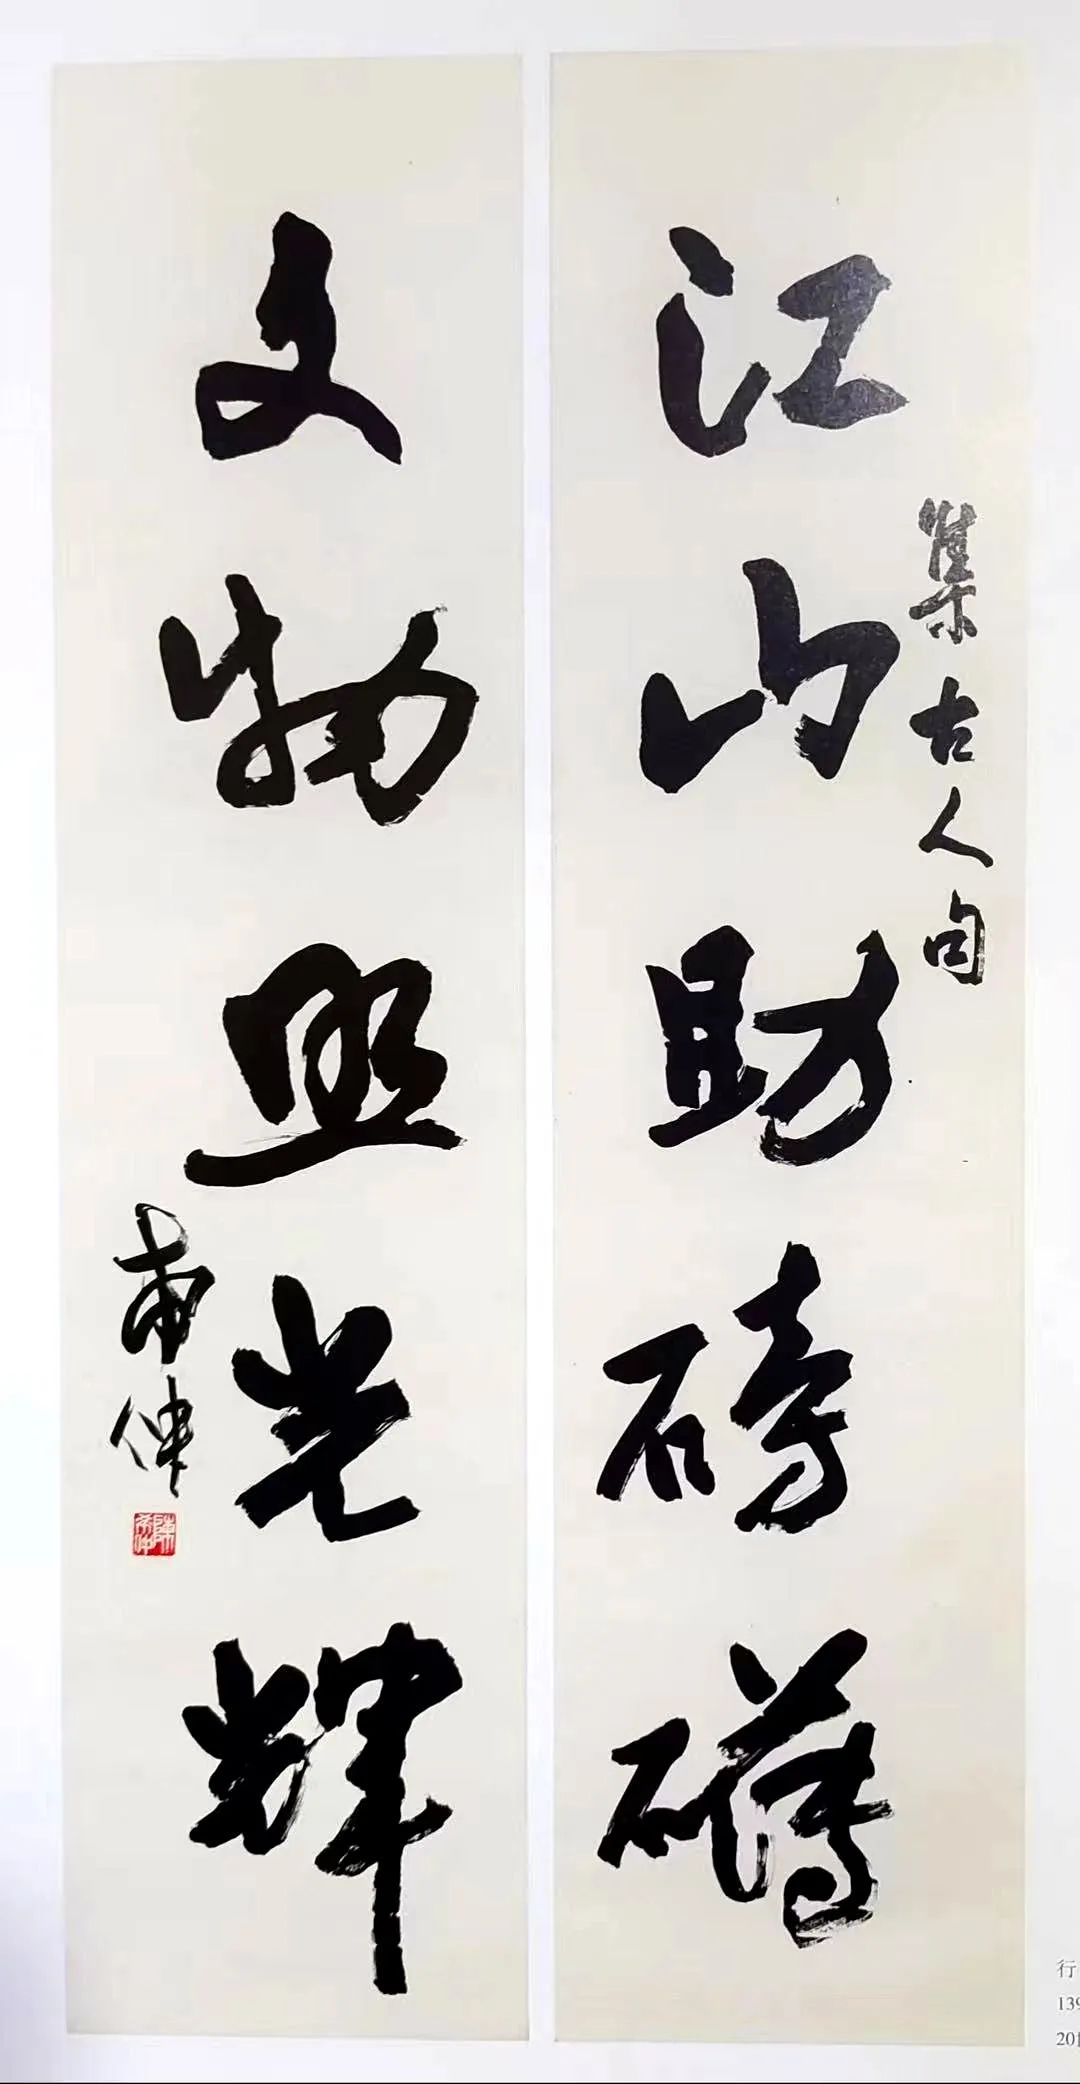 江山助磅礴
集古人句
文物照光輝
希仲
陳希仲
行
139
20